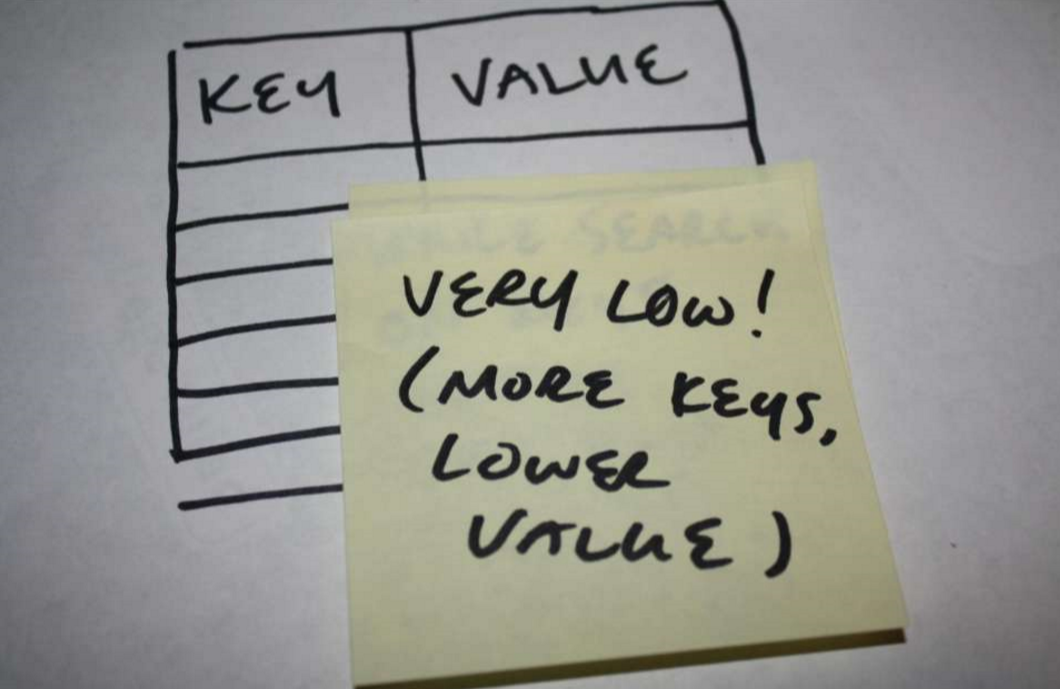 KEY VALUE
VERY LOW!
(MORE KEYS,
LOWER
VALUE)